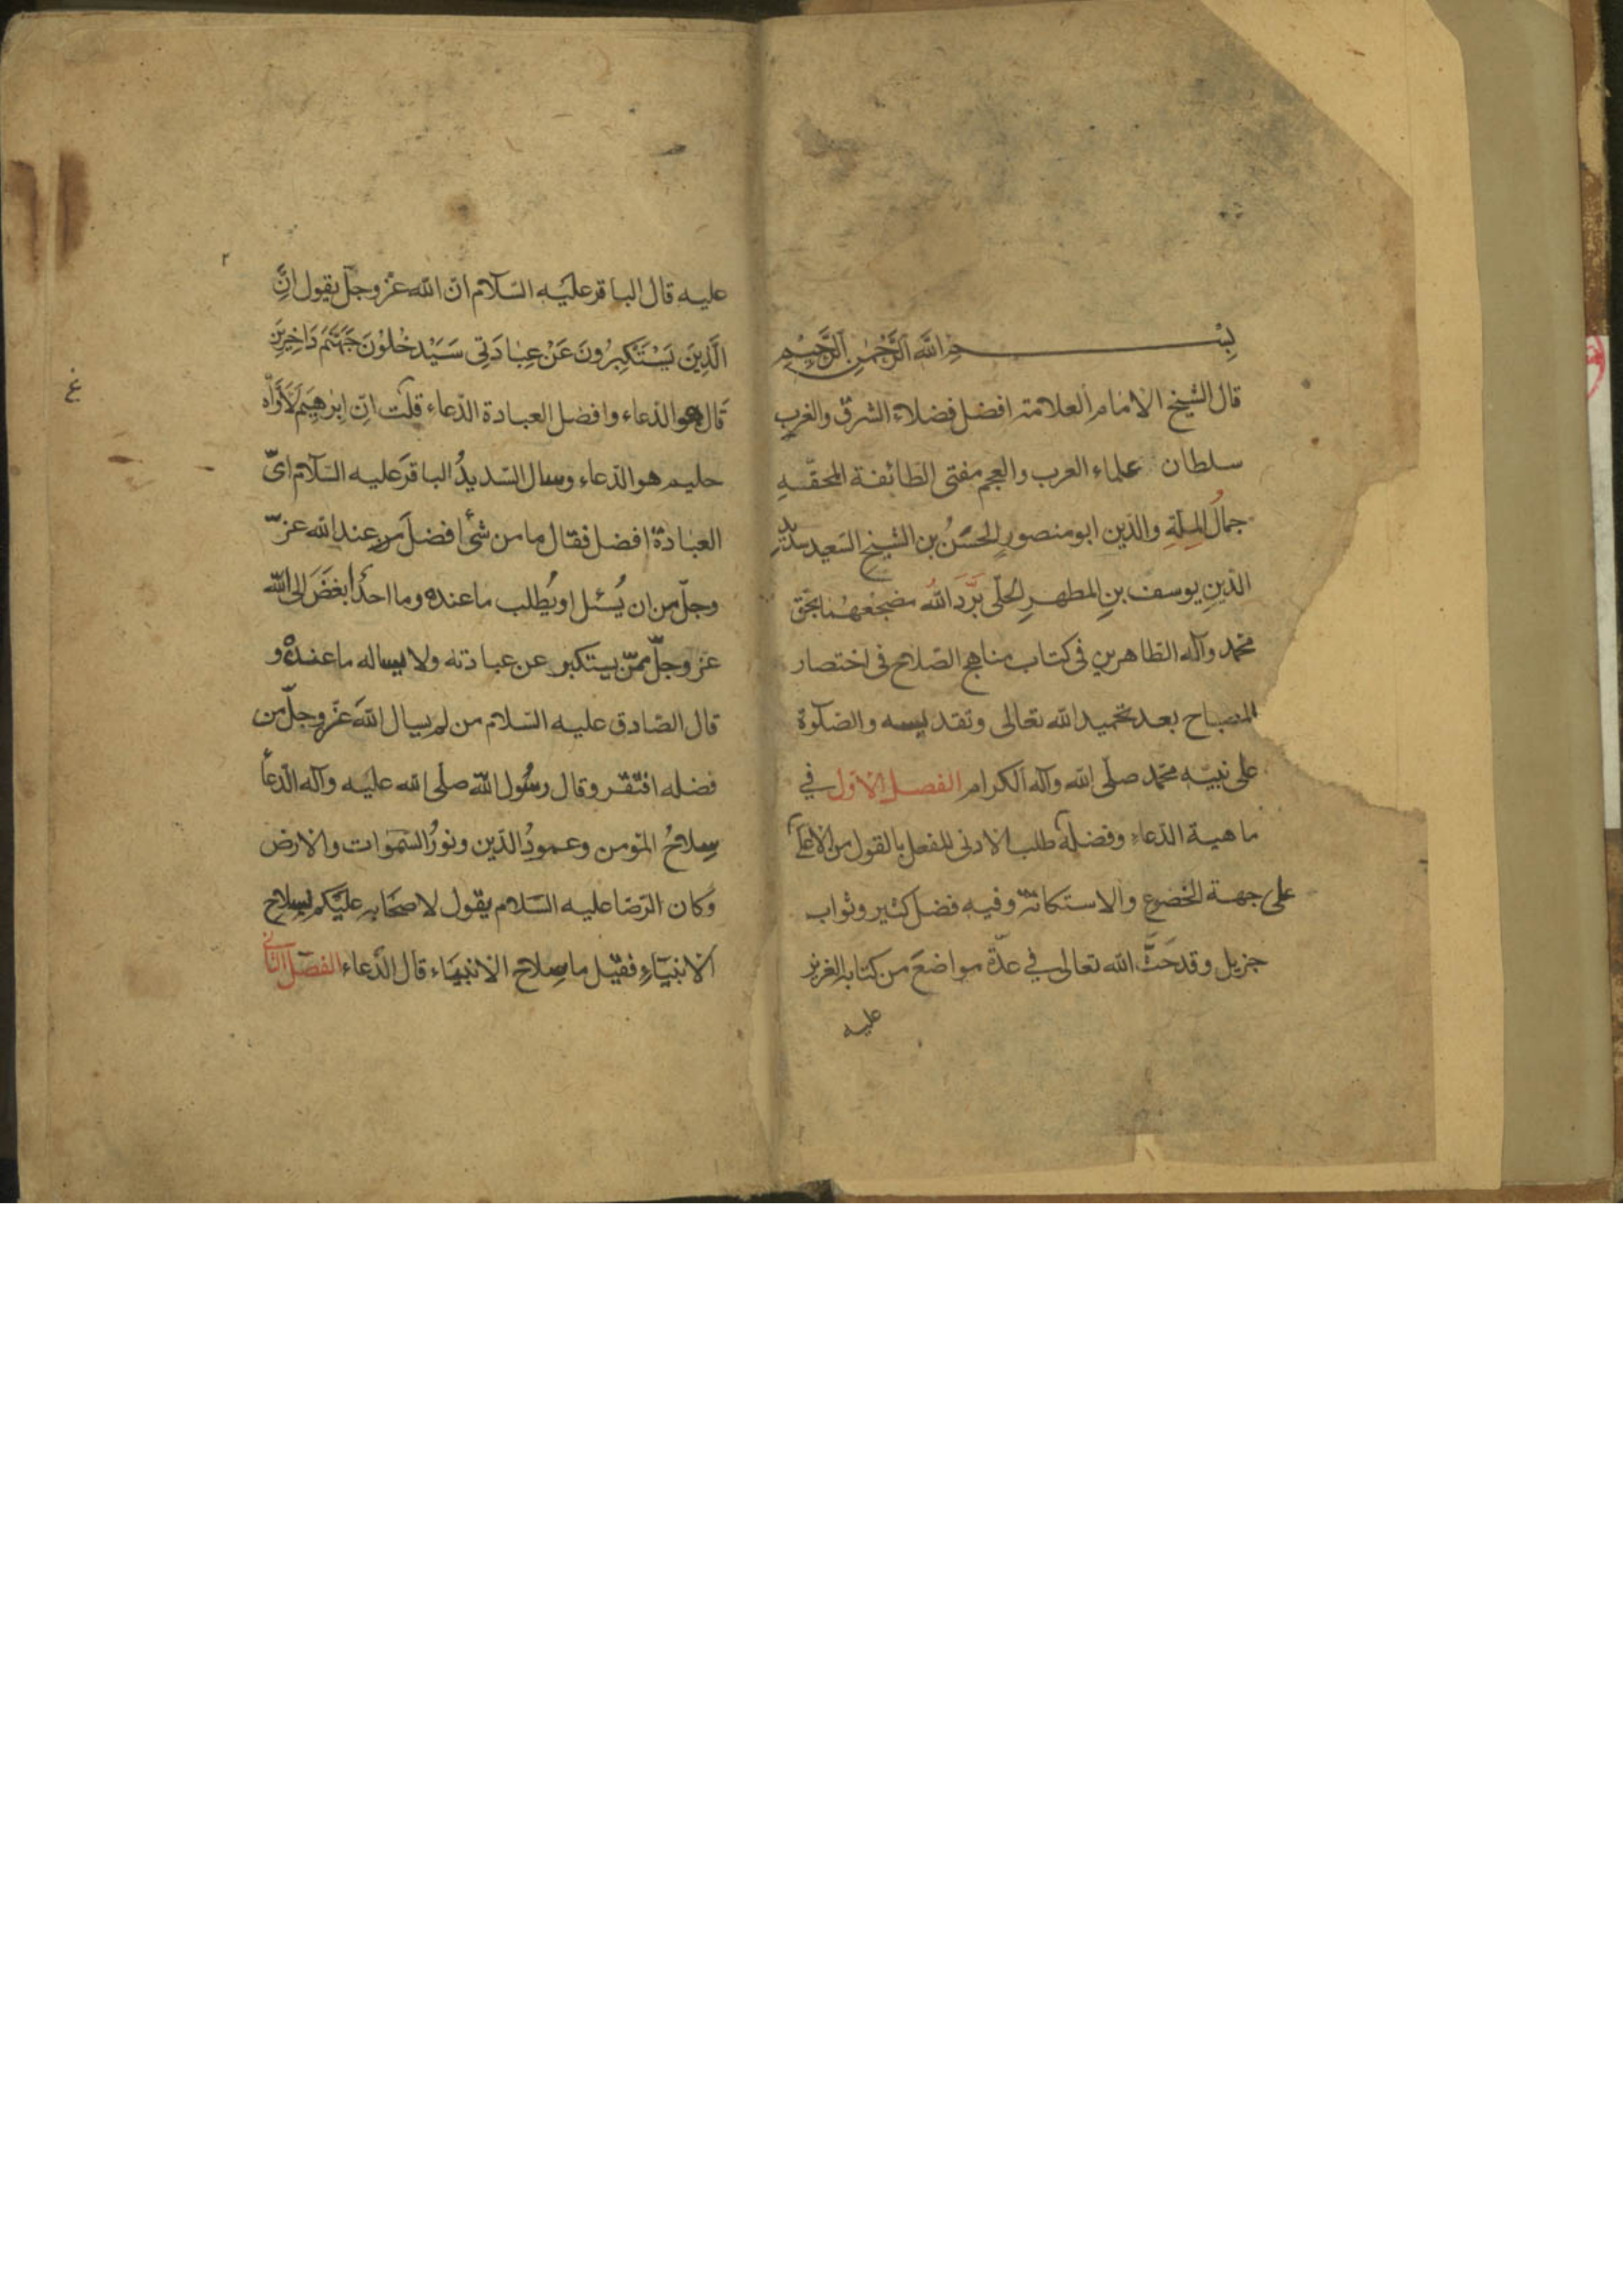 بِسْمِ اللَّه الرَّحْمٰنِ الرَّحِيْمِ
قال الشيخ الامام العلامة افضل فضلاء الشرق والغرب
سلطان علماء العرب والعجم مفتى الطائفة المحقّه
جمالُ المِلّةِ والدّين ابو منصورٍ الحَسَنُ بن الشيخ السّعيد سديد
الدّينِ يوسف بنِ المطهرِ الحلّى بَرَّدَ اللّٰه مضجعهما بحق
محمّد وآله الطاهرين فى كتاب مناهج الصّلاح فى اختصار
المصباح بعد تحميد الله تعالى وتقديسه والصّلوة
على نبيّه محمّد صلّى الله وآله الكرام الفصل الاوّل في
ماهية الدّعاء وفضله طلب الادنى للفعل بالقول من الاعلى
على جهة الخضوع والاستكانة وفيه فضل كثير وثواب
جزيل وقد حَثَّ الله تعالى في عدّة مواضعَ من كتابه العزيز
عليه
٢
عليه قال الباقر عليه السّلام انّ الله عزّ وجلّ يقول اِنَّ
الَّذِينَ يَسْتَكْبِرُونَ عَنْ عِبَادَتِى سَيَدْخُلُوْنَ جَهَنَّمَ دَاخِرِيَن
قال هو الدّعاء وافضل العبادة الدّعاء قلت انّ اِبْرهِيَم لَاَوَّاهٌ
حليم هو الدّعاء وسال السّديدُ الباقرَ عليه السّلام اىّ
العبادة افضل فقال ما من شئ افضلَ من عند الله عزّ
وجلّ من ان يُسْئل او يُطلب ما عنده وما احدٌ ابغضَ الى الله
عزّ وجلّ ممّن يستكبر عن عبادته ولا يساله ما عنده و
قال الصّادق عليه السّلام من لم يسال اللّٰهَ عزّ وجلّ من
فضله افتقر وقال رسُول اللّٰه صلّى الله عليه وآله الدّعا
سِلاحُ المؤمن وعمودُ الدّين ونورُ السّمٰوات والارض
وكان الرّضا عليه السّلام يقول لاصحَابه عليَكم بسِلاح
الانبيَاءِ فقيل ما سِلاح الانبيَاء قال الدّعاء الفصل الثانى